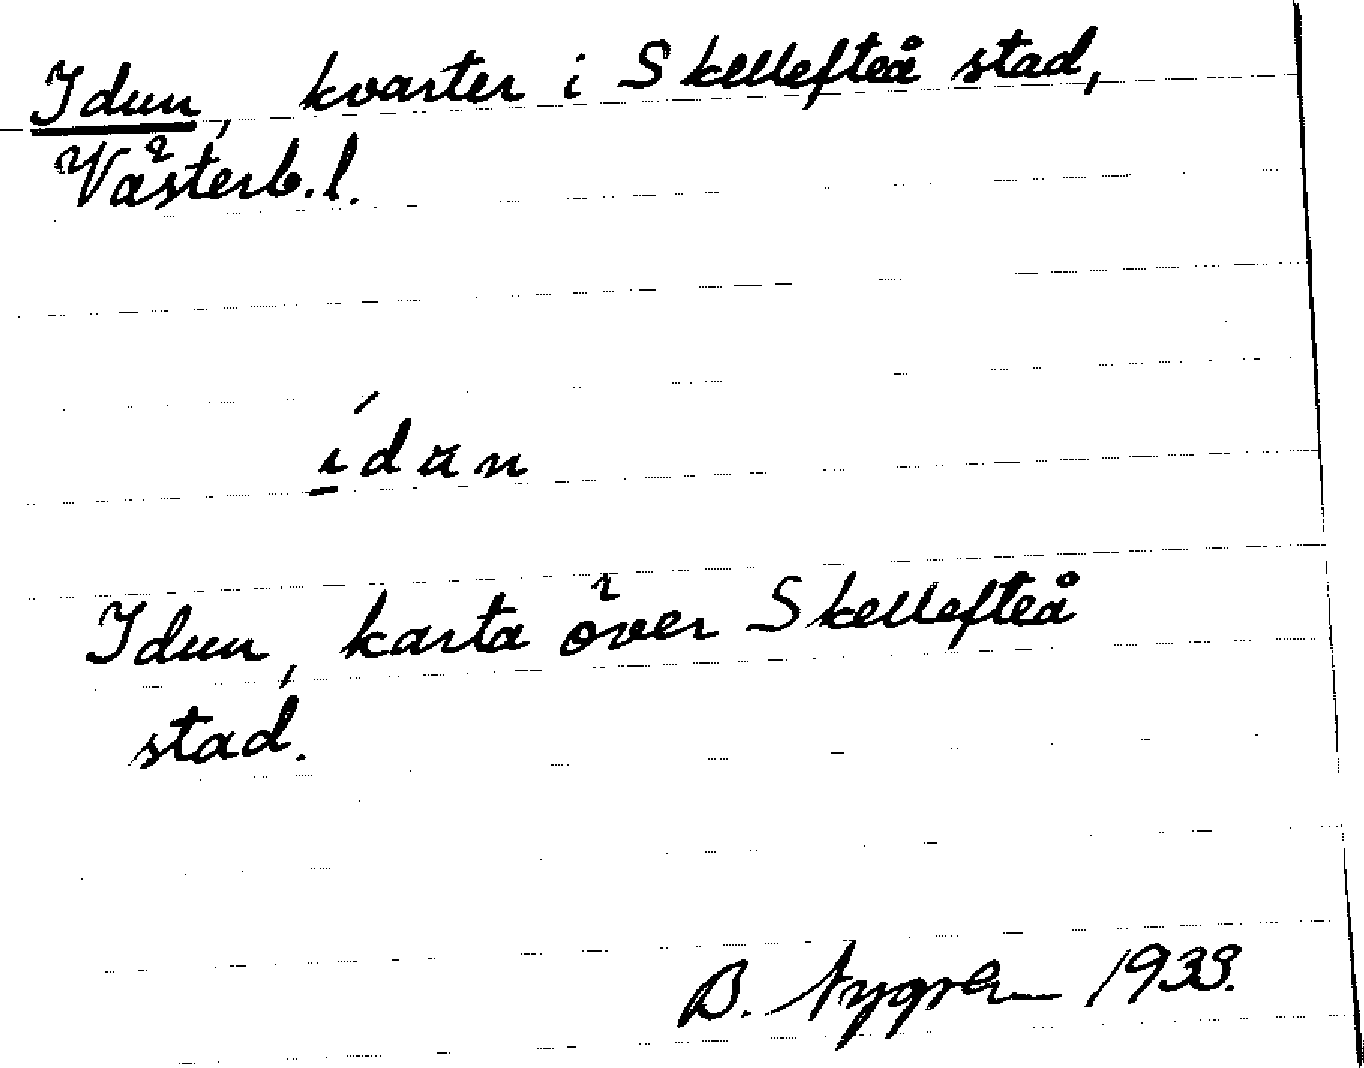 Idun, kvarter i Skellefteå stad,
Västerb. l.
ídan
Idun, karta över Skellefteå
stad.
B. Nygren 1933.